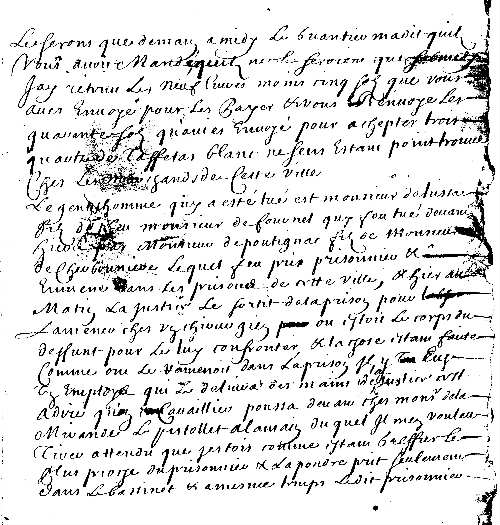 Le ferons que demain a midy Le buantier ma dit quil
Vous avoit Mandé quil ne le feroient que
Jay retenu Les neuf Livres moins cinq solz que vous
aves Envoyé pour Les payer & vous renvoye Les
quarante solz quavies Envoyé pour achepter trois
quartz de taffetas blanc ne sen Estant point trouvé
Ches Les Marchands de Ceste ville
Le gentilhomme quy a esté tué est monsieur de lussac
filz de feu monsieur de fournel quy fou tué devant
hier par Monsieur de poutignac filz de Monsieur
de Charbonniere Lequel feu pris prisonnier &
Emmené dans Les prisons de cette ville, & hier au
Matin La justice Le sortit de la prison pour
Lamener ches un chirurgien ou estoit Le corps du
deffunt pour Le luy confronter & la chose estant faicte
Comme on Le ramenoit dans La prison Il y
Employé qui Le delivra des mains de la Justice c'est
a dire quun Cavallier poussa devant ches monsr de la
Mirande Le pistollet a la main duquel Il men vouleut
Tirer attendu que jestois comme estant greffier Le
plus proche du prisonnier & La poudre prit seulement
dans Le bassinet & a mesme temps Ledit prisonnier